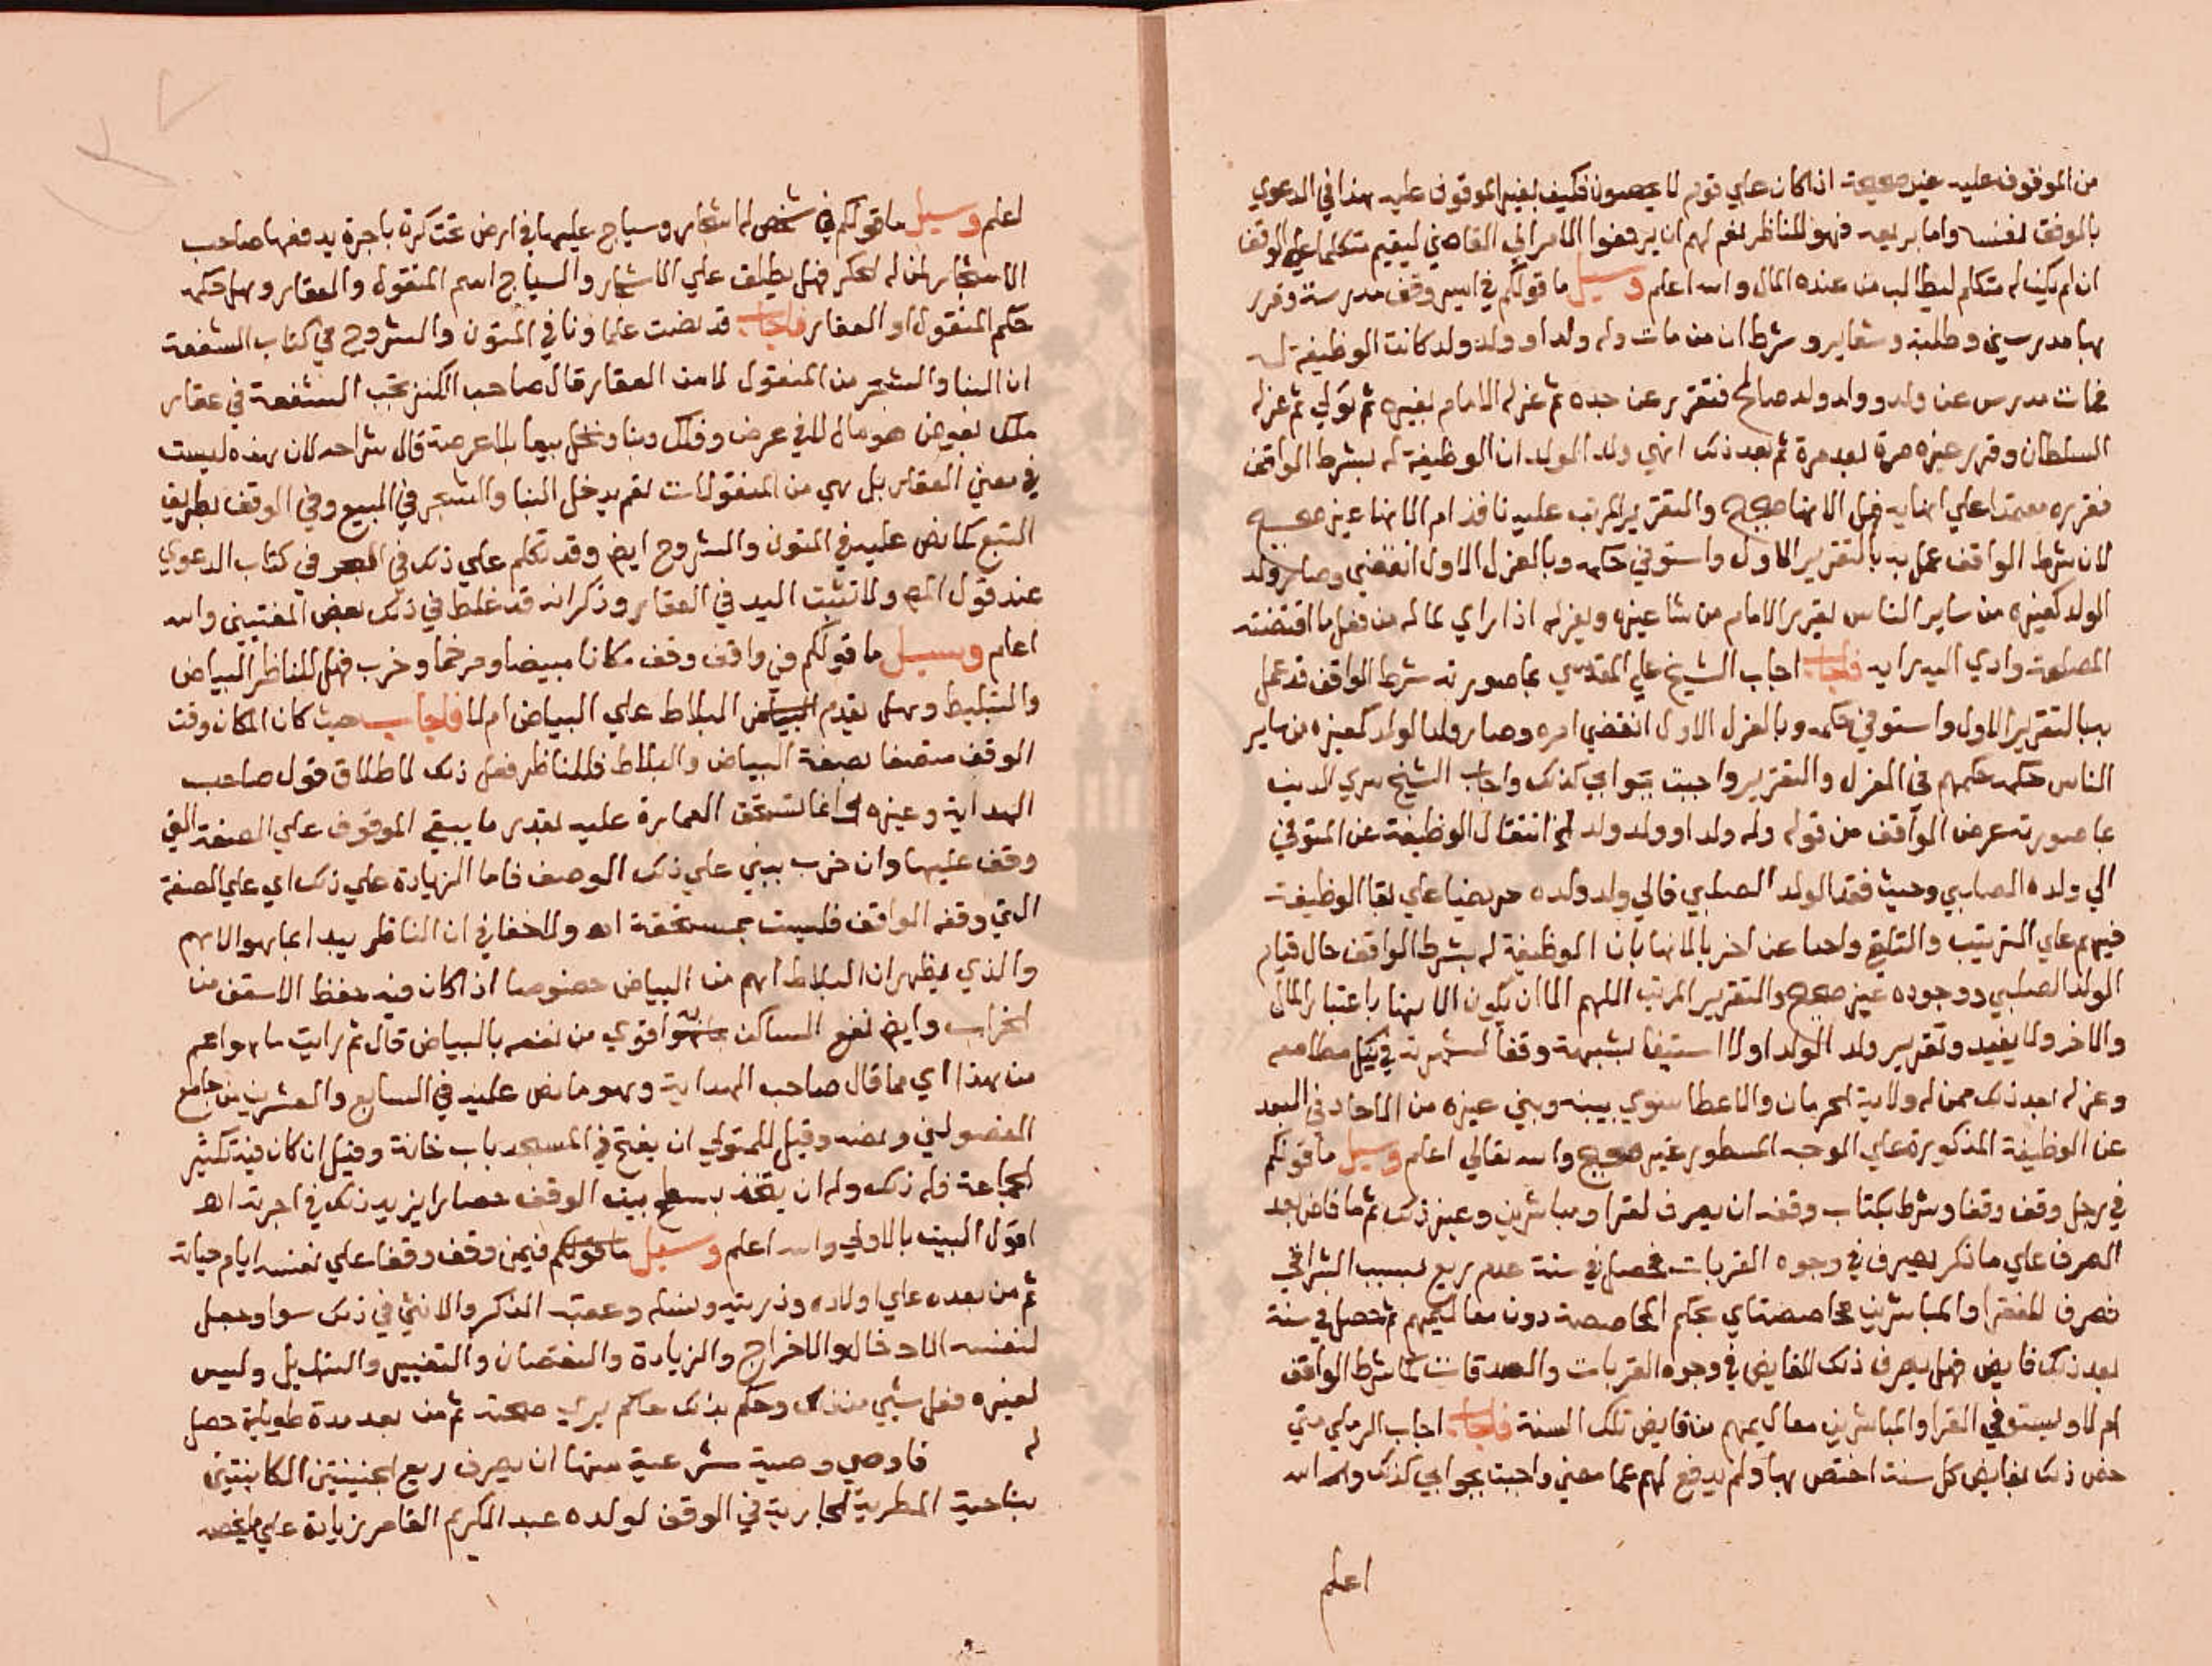 من الموقوف عليه غير صحيحة اذا كان علي قوم لا يحصون فكيف بغير الموقوف عليه هذا في الدعوي
بالوقف نفسه واما بريعه فهو للناظر نعم لهم ان يرفعوا الامر الي القاضي ليقيم متكلما علي الوقف
ان لم يكن له متكلم ليطالب من عنده المال والله اعلم وسيل ما قولكم في امير وقف مدرسة وقرر
بها مدرسين وطلبة وشعاير وشرط ان من مات وله ولد او ولد ولد كانت الوظيفة له
فمات مدرس عن ولد وولد ولد صالح فتقرر عن جده ثم عزله الامام بغيره ثم تولي ثم عزله
السلطان وقرر غيره مرة بعد مرة ثم بعد ذلك انهي ولد الولد ان الوظيفة له بشرط الواقف
فقرره معتمدا علي انهايه فهل الانها صحيح والتقرير المرتب عليه نافذ ام الانها غير صحيح
لان شرط الواقف عمل به بالتقرير الاول واستوفي حكمه وبالعزل الاول انقضي وصار ولد
الولد كغيره من ساير الناس يقرر الامام من شا غيره ويعزله اذا راي لما له من فعل ما اقتضته
المصلحة وادي اليه رايه فاجاب اجاب الشيخ علي المقدسي بما صورته شرط الواقف قد عمل
به بالتقرير الاول واستوفي حكمه وبالعزل الاول انقضي امره وصار ولد الولد كغيره من ساير
الناس حكمه حكمهم في العزل والتقرير واجبت بجوابي كذلك واجاب الشيخ سري الدين
بما صورته غرض الواقف من قوله وله ولد او ولد ولد الخ انتقال الوظيفة عن المتوفي
الي ولده الصلبي وحيث فقد الولد الصلبي فالي ولد ولده حريضا علي بقا الوظيفة
فيهم علي الترتيب والتلقي واحدا عن اخر بالانها بان الوظيفة له بشرط الواقف حال قيام
الولد الصلبي ووجوده غير صحيح والتقرير المرتب اللهم الا ان يكون الانها باعتبار المال
والاخر ولا يفيد وتقرير ولد الولد اولا استيفا لشبهة وقفا لشهرته في نيل مطامعه
وعزله بعد ذلك ممن له ولاية الحرمان والاعطا سوي بينه وبين غيره من الاحاد في البعد
عن الوظيفة المذكورة علي الوجه المسطور غير صحيح والله تعالي اعلم وسيل ما قولكم
في رجل وقف وقفا وشرط بكتاب وقفه ان يصرف لقرا ومباشرين وغير ذلك ثم ما فاض بعد
الصرف علي ما ذكر يصرف في وجوه القربات فحصل في سنة عدم ريع بسبب الشراقي
فصرف للفقرا والمباشرين محاصصتاي بحكم المحاصصة دون معاليمهم ثم تحصل في سنة
بعد ذلك فايض فهل يصرف ذلك الفايض في وجوه القربات والصدقات كما شرط الواقف
ام لا ويستوفي القرا والمباشرين معاليمهم من فايض تلك السنة فاجاب اجاب الرملي متي
خص ذلك بفايض كل سنة اختص بها ولم يدفع لهم عما مضي واجبت بجوابي كذلك والله
اعلم
اعلم وسيل ما قولكم في شخص له اشجار وسياج عليها في ارض محتكرة باجرة يدفعها صاحب
الاشجار لمن له الحكر فهل يطلق علي الاشجار والسياج اسم المنقول والعقار وهل حكمه
حكم المنقول او العقار فاجاب قد نصت علماونا في المتون والشروح في كتاب الشفعة
ان البنا والشجر من المنقول لا من العقار قال صاحب الكنز تجب الشفعة في عقار
ملك بعوض هو مال لا في عرض وفلك وبنا ونخل بيعا بلا عرصة قال شراحه لان هذه ليست
في معني العقار بل هي من المنقولات نعم يدخل البنا والشجر في المبيع وفي الوقف بطريق
التبع كما نص عليه في المتون والشروح ايض وقد تكلم علي ذلك في البحر في كتاب الدعوي
عند قول المص ولا تثبت اليد في العقار وذكر انه قد غلط في ذلك بعض المفتيين والله
اعلم وسيل ما قولكم في واقف وقف مكانا مبيضا ومرخما وخرب فهل للناظر البياض
والتبليط وهل يقدم البلاط علي البياض ام لا فاجاب حيث كان المكان وقت
الوقف متصفا بصفة البياض والبلاط فللناظر فعل ذلك لاطلاق قول صاحب
الهداية وغيره انما تستحق العمارة عليه بقدر ما يبقي الموقوف علي الصفة التي
وقف عليها وان خرب يبني علي ذلك الوصف فاما الزيادة علي ذلك اي علي الصفة
التي وقفه الواقف فليست بمستحقة اه ولا خفا في ان الناظر يبدا بما هو الاهم
والذي يظهر ان البلاط اهم من البياض خصوصا اذا كان فيه حفظ الاسقف من
الخراب وايض نفع الساكن به اقوي من نفعه بالبياض قال ثم رايت ما هو اعم
من هذا اي مما قال صاحب الهداية وهو ما نص عليه في السابع والعشرين من جامع
الفصولين ونصه وقيل للمتولي ان يفتح في المسجد باب خانة وقيل ان كان فيه تكثير
الجماعة فله ذلك وله ان يتخذ بسطح بيت الوقف حصارا يزيد ذلك في اجرته اه
اقول البيت بالاولي والله اعلم وسيل ما قولكم فيمن وقف وقفا علي نفسه ايام حياته
ثم من بعده علي اولاده وذريته ونسله وعقبه الذكر والانثي في ذلك سوا وجعل
لنفسه الادخال والاخراج والزيادة والنقصان والتغيير والتبديل وليس
لغيره فعل شي من ذلك وحكم بذلك حاكم يري صحته ثم من بعد مدة طويلة حصل
له فاوصي وصية شرعية منها ان يصرف ريع الجنينتين الكاينتين
بناحية المطرية الجارية في الوقف لولده عبد الكريم القاصر زيادة علي ما يخصه